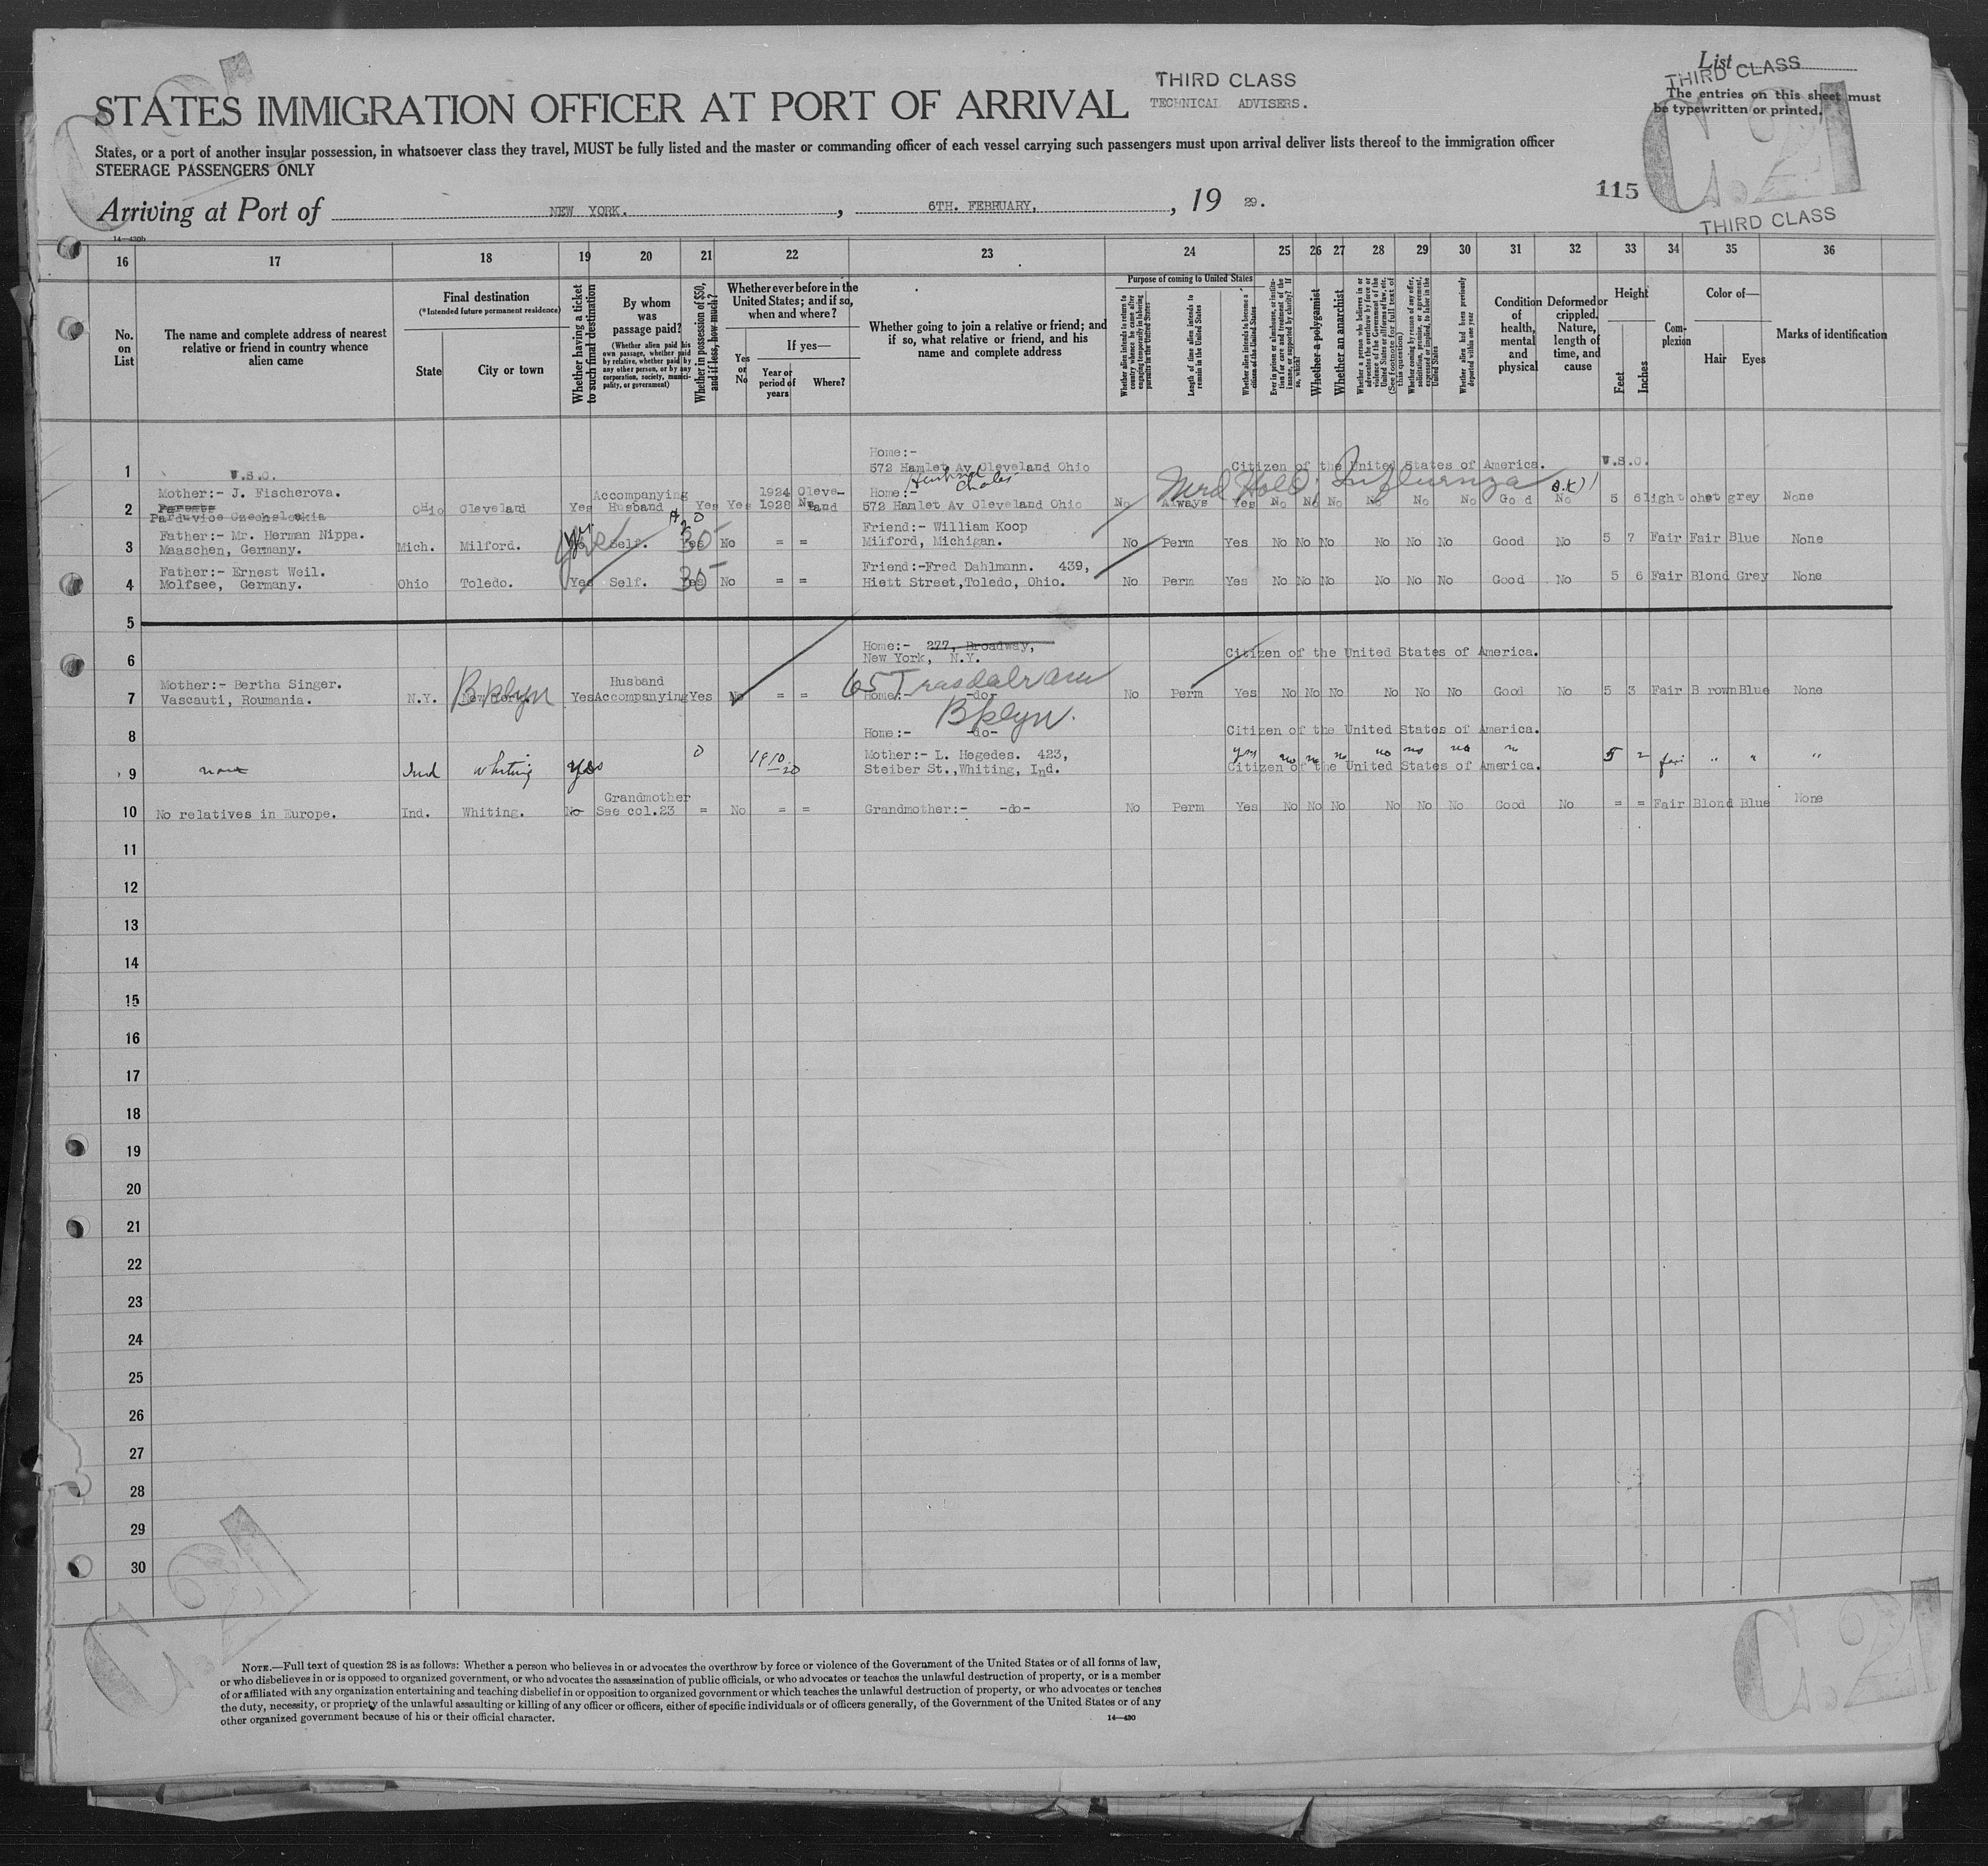 THIRD CLASS
TECHNICAL ADVISERS.
List
THIRD CLASS
The entries on this sheet must
be typewritten or printed.
STATES IMMIGRATION OFFICER AT PORT OF ARRIVAL
States, or a port of another insular possession, in whatsoever class they travel, MUST be fully listed and the master or commanding officer of each vessel carrying such passengers must upon arrival deliver lists thereof to the immigration officer
STEERAGE PASSENGERS ONLY
115
C.21
THIRD CLASS
Arriving at Port of NEW YORK. , 6TH. FEBRUARY, , 19 29.
14—430b
16 17 18 19 20 21 22 23 24 25 26 27 28 29 30 31 32 33 34 35 36
No. on List
The name and complete address of nearest relative or friend in country whence alien came
Final destination
(*Intended future permanent residence)
State
City or town
Whether having a ticket to such final destination
By whom was passage paid?
(Whether alien paid his own passage, whether paid by relative, whether paid by any other person, or by any corporation, society, municipality, or government)
Whether in possession of $50, and if less, how much?
Whether ever before in the United States; and if so, when and where?
Yes or No
If yes—
Year or period of years
Where?
Whether going to join a relative or friend; and if so, what relative or friend, and his name and complete address
Purpose of coming to United States
Whether alien intends to return to country whence he came after engaging temporarily in laboring pursuits in the United States
Length of time alien intends to remain in the United States
Whether alien intends to become a citizen of the United States
Ever in prison or almshouse, or institution for care and treatment of the insane, or supported by charity? If so, which?
Whether a polygamist
Whether an anarchist
Whether a person who believes in or advocates the overthrow by force or violence of the Government of the United States or all forms of law, etc. (See footnote for full text of this question)
Whether coming by reason of any offer, solicitation, promise, or agreement, expressed or implied, to labor in the United States
Whether alien had been previously deported within one year
Condition of health, mental and physical
Deformed or crippled. Nature, length of time, and cause
Height
Feet
Inches
Complexion
Color of—
Hair
Eyes
Marks of identification
1 U.S.C. Home:- 572 Hamlet Av Cleveland Ohio Citizen of the United States of America. U.S.C.
Husband Charles
Med Hold Influenza
2 Mother:- J. Fischerova. Parents Ohio Cleveland Yes Accompanying Husband Yes Yes 1924 1928 Cleveland Home:- 572 Hamlet Av Cleveland Ohio No Always Yes No No No No No No Good No 5 6 light chet grey None
3 Father:- Mr. Herman Nippa. Maaschen, Germany. Mich. Milford. Self. Yes 30 No = = Friend:- William Koop Milford, Michigan. No Perm Yes No No No No No No Good No 5 7 Fair Fair Blue None
4 Father:- Ernest Weil. Molfsee, Germany. Ohio Toledo. Yes Self. Yes 35 No = = Friend:-Fred Dahlmann. 439, Hiett Street,Toledo, Ohio. No Perm Yes No No No No No No Good No 5 6 Fair Blond Grey None
5
6 Home:- 277, Broadway, New York, N.Y. Citizen of the United States of America.
65
7 Mother:- Bertha Singer. Vascauti, Roumania. N.Y. Bklyn Yes Husband Accompanying Yes No = = Home:- -do- Bklyn. No Perm Yes No No No No No No Good No 5 3 Fair Brown Blue None
8 Home:- -do- Citizen of the United States of America.
9 none Ind Whiting Yes 0 1910 20 Mother:- L. Hegedes. 423, Steiber St.,Whiting, Ind. yes no no no no no no Citizen of the United States of America. 5 2 fair " " "
10 No relatives in Europe. Ind. Whiting. No Grandmother See col.23 = No = = Grandmother:- -do- No Perm Yes No No No No No No Good No = = Fair Blond Blue None
11
12
13
14
15
16
17
18
19
20
21
22
23
24
25
26
27
28
29
30
C.21
C.21
NOTE.—Full text of question 28 is as follows: Whether a person who believes in or advocates the overthrow by force or violence of the Government of the United States or of all forms of law,
or who disbelieves in or is opposed to organized government, or who advocates the assassination of public officials, or who advocates or teaches the unlawful destruction of property, or is a member
of or affiliated with any organization entertaining and teaching disbelief in or opposition to organized government or which teaches the unlawful destruction of property, or who advocates or teaches
the duty, necessity, or propriety of the unlawful assaulting or killing of any officer or officers, either of specific individuals or of officers generally, of the Government of the United States or of any
other organized government because of his or their official character.
14—430